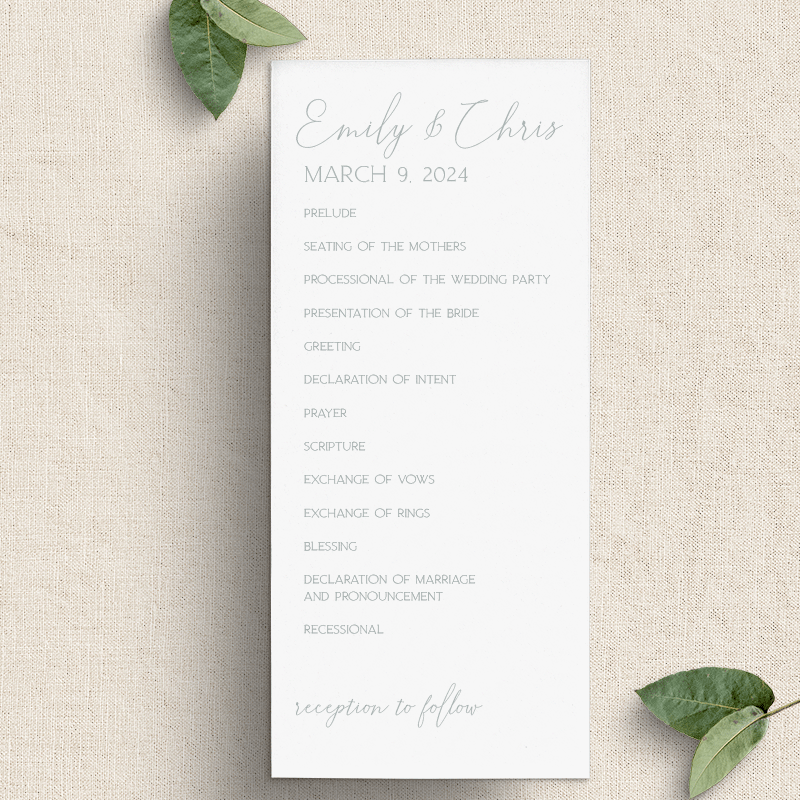 Emily & Chris
MARCH 9, 2024
PRELUDE
SEATING OF THE MOTHERS
PROCESSIONAL OF THE WEDDING PARTY
PRESENTATION OF THE BRIDE
GREETING
DECLARATION OF INTENT
PRAYER
SCRIPTURE
EXCHANGE OF VOWS
EXCHANGE OF RINGS
BLESSING
DECLARATION OF MARRIAGE
AND PRONOUNCEMENT
RECESSIONAL
reception to follow